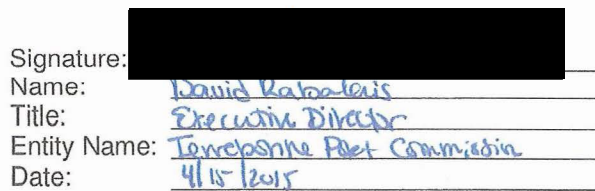 Signature:
Name: David Rabalais
Title: Executive Director
Entity Name: Terrebonne Port Commission
Date: 4/15/2015